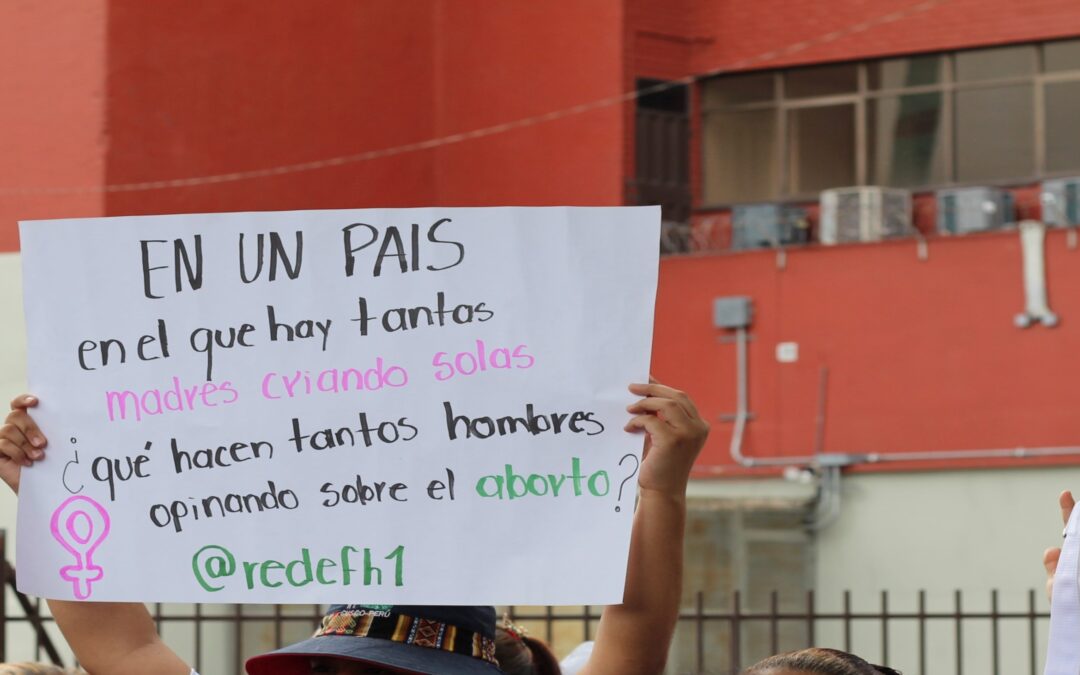 EN UN PAIS
en el que hay tantas
madres criando solas
¿qué hacen tantos hombres
opinando sobre el aborto?
@redefh1
CUSCO-PERÚ